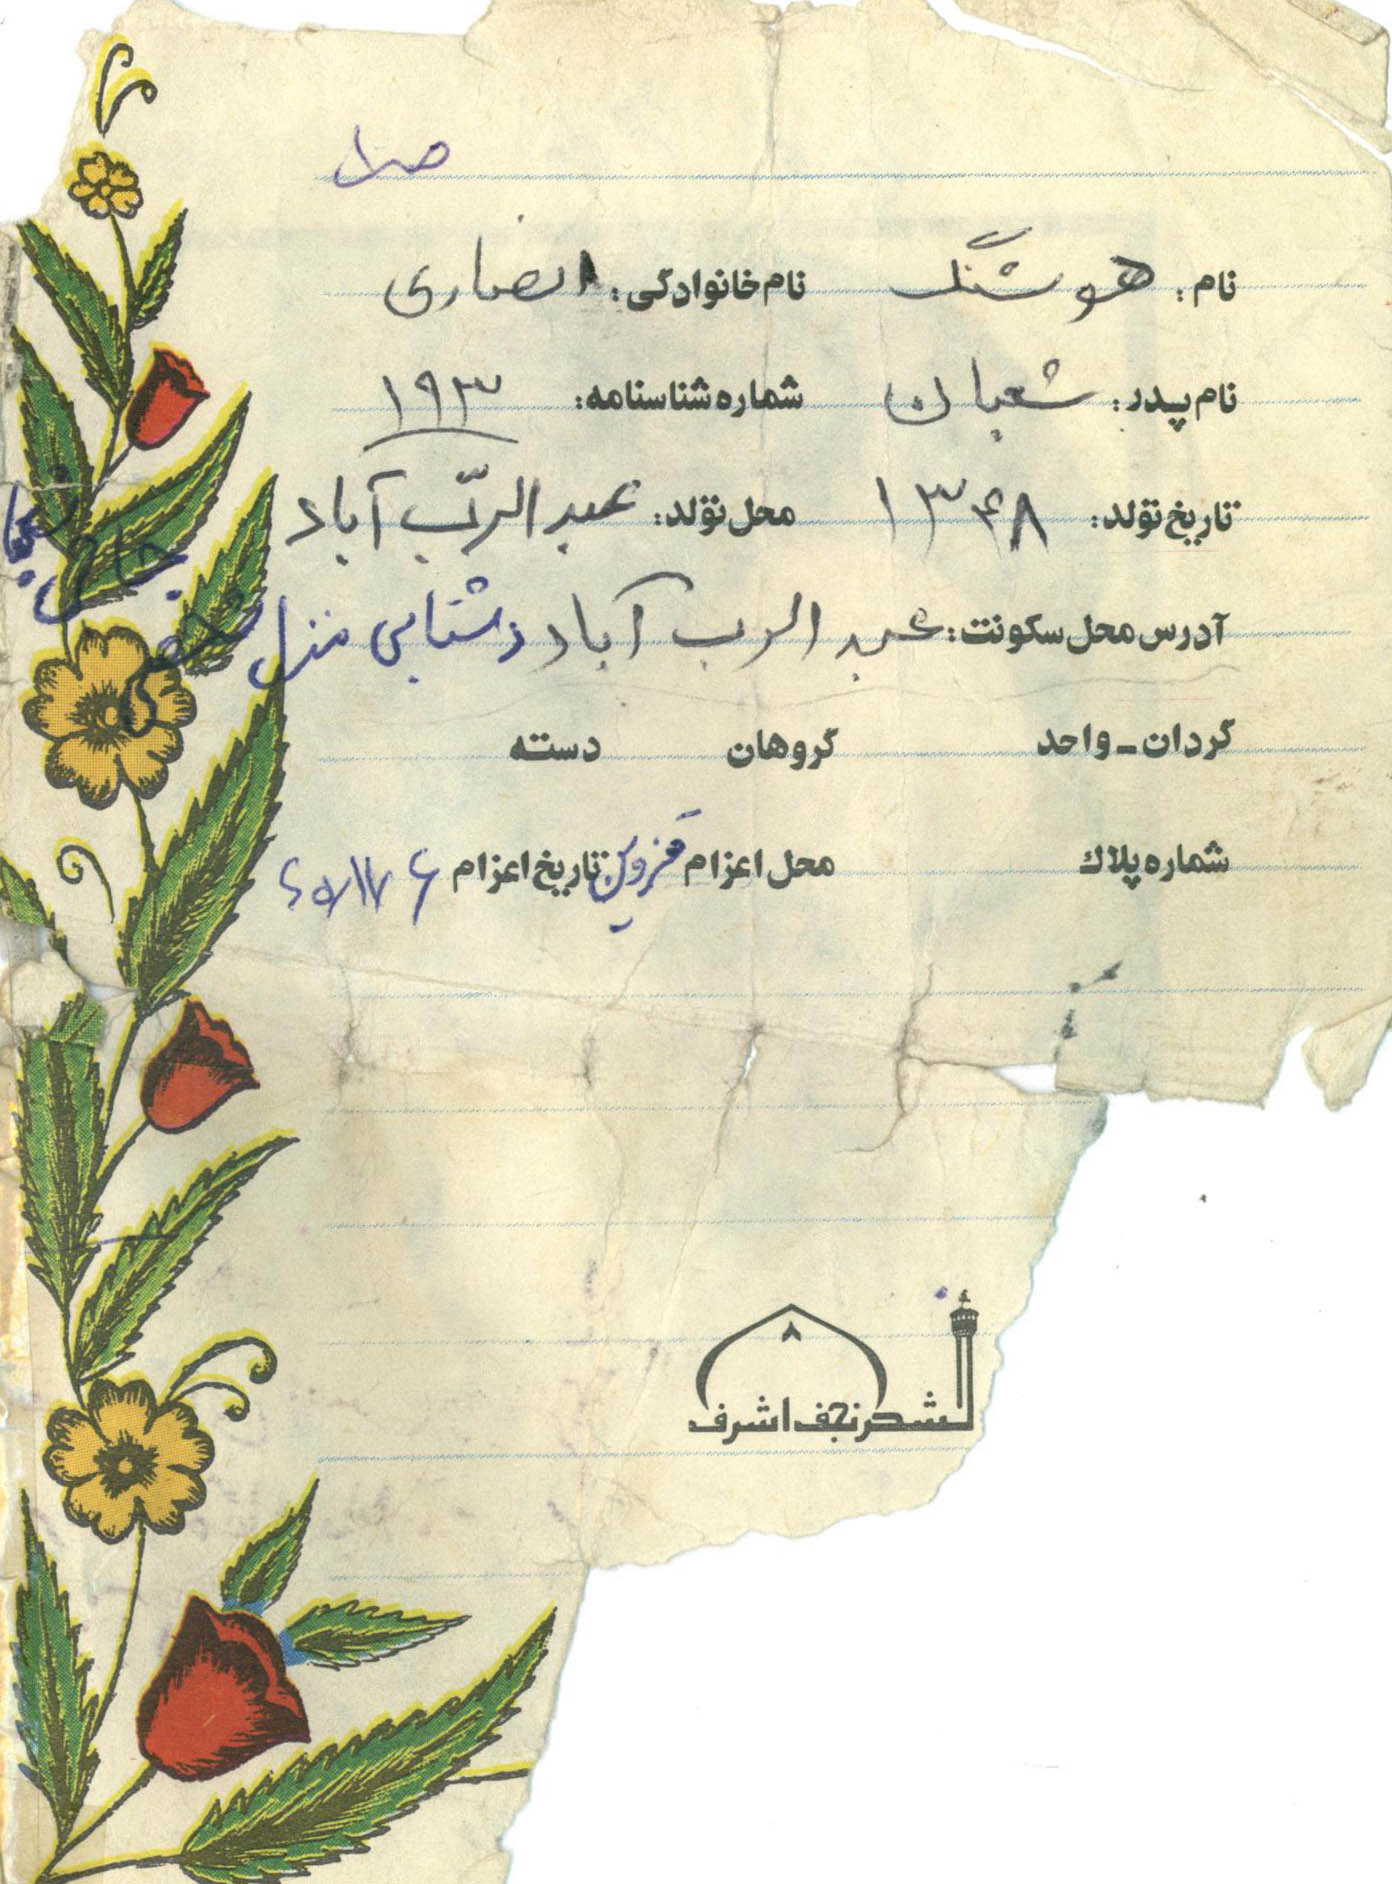 نام: هوشنگ نام خانوادگی: انصاری
نام پدر: شعبان شماره شناسنامه: ۱۹۳
تاریخ تولد: ۱۳۴۸ محل تولد: عبدالربّ آباد
آدرس محل سکونت: عبدالرب آباد دشتابی منزل
گردان - واحد گروهان دسته
شماره پلاک محل اعزام قزوین تاریخ اعزام
۸
لشکر نجف اشرف